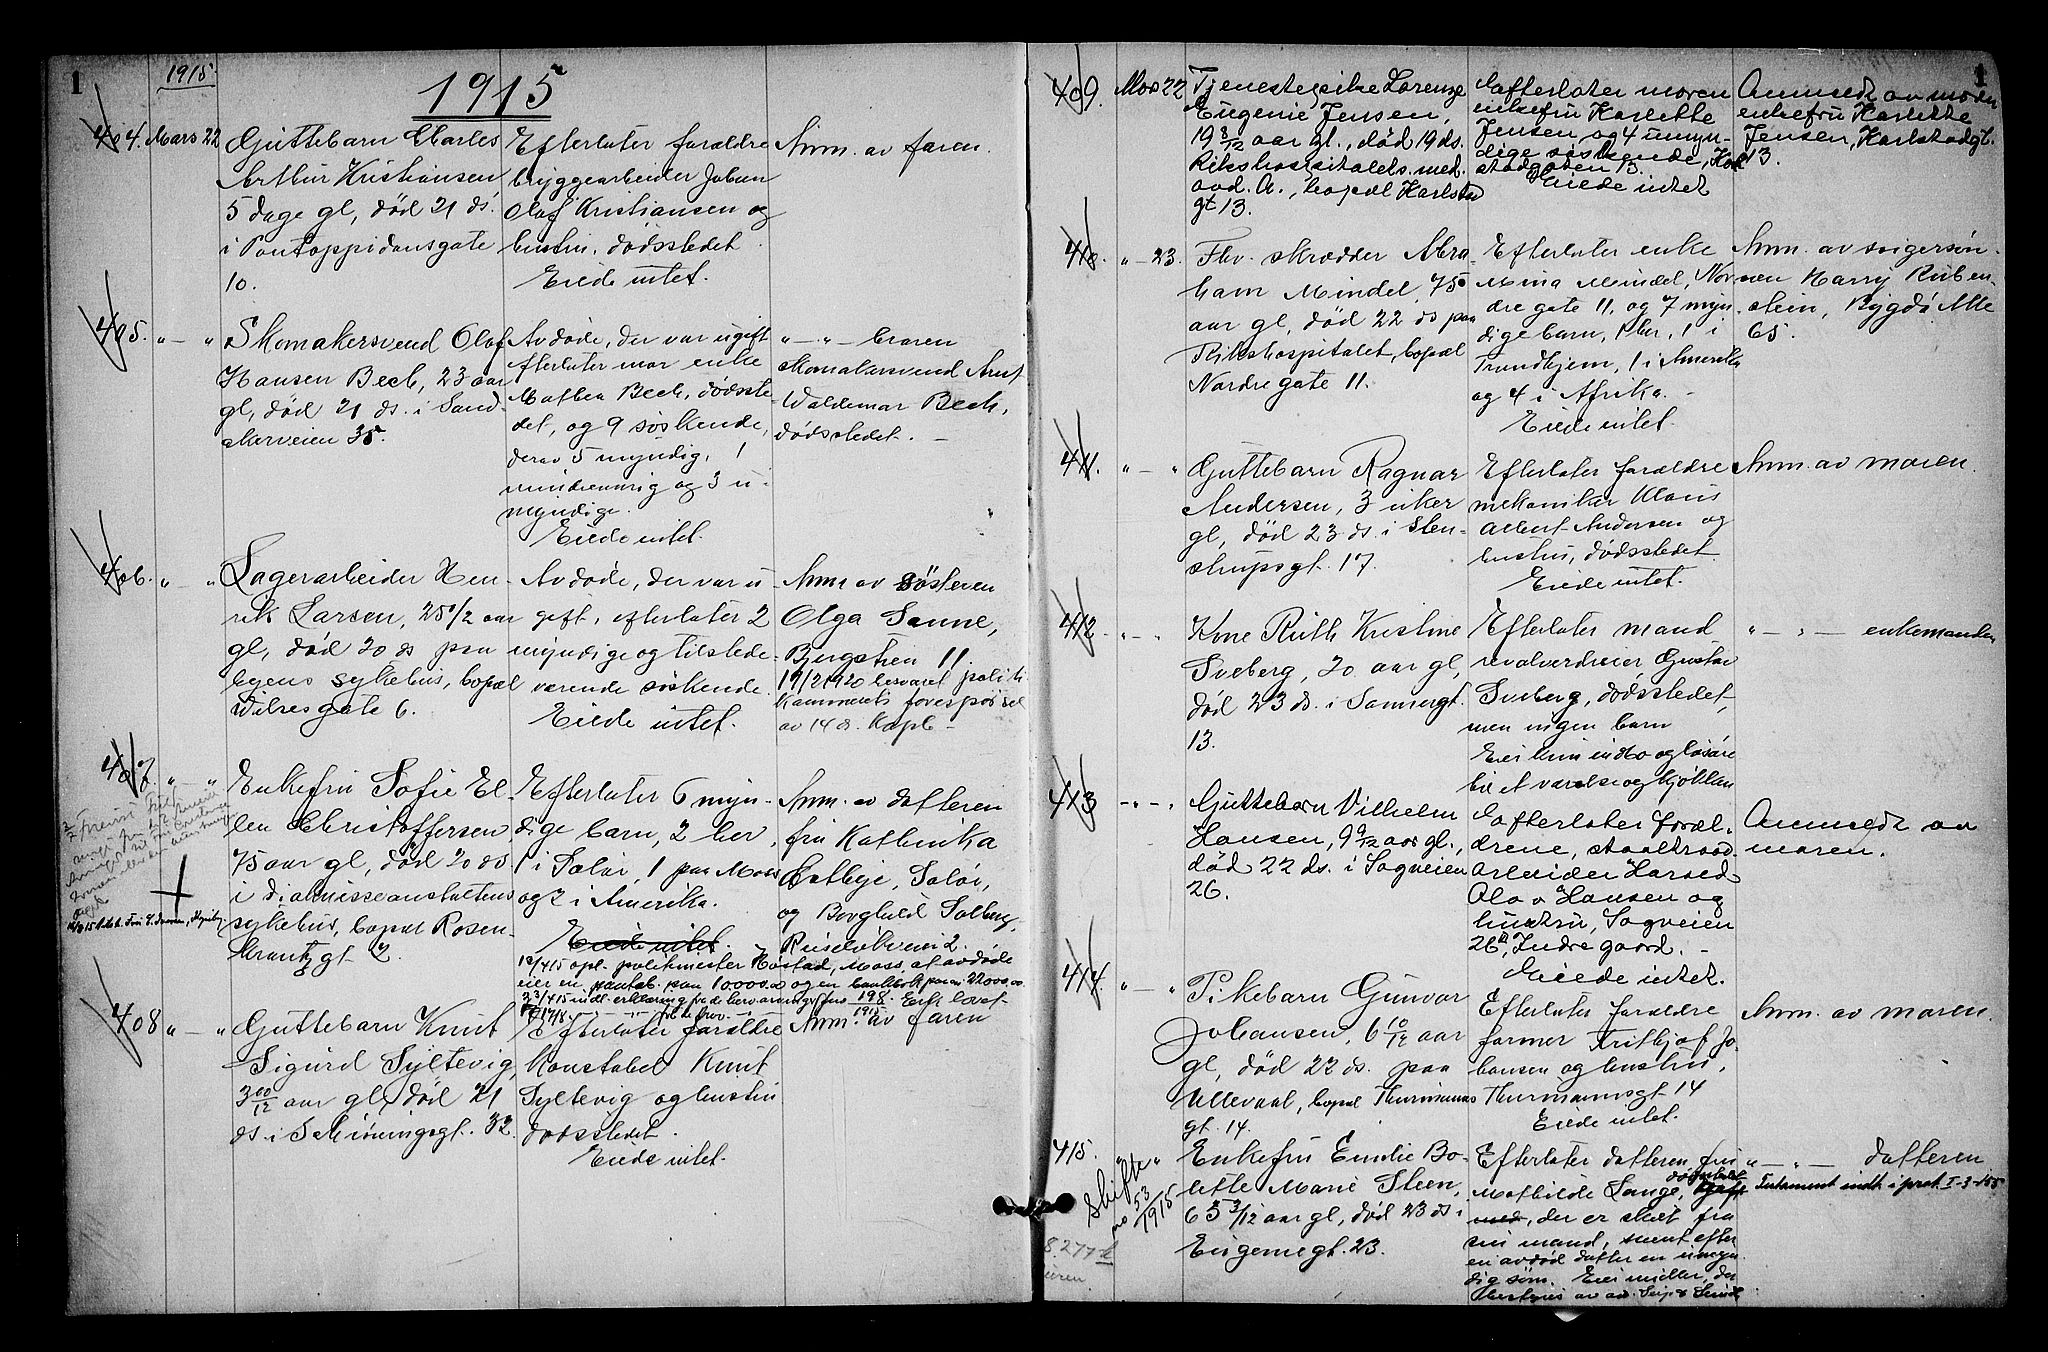 1
1915.
1915
404. Mars 22
Guttebarn Charles
Arthur Kristiansen
5 dage gl, død 21 ds.
i Pontoppidansgate
10.
Efterlater forældre
bryggearbeider Johan
Olaf Kristiansen og
hustru, dødsstedet
Eiede intet.
Anm. av faren.
405. " — "
Skomakersvend Olaf
Hansen Beck, 23 aar
gl, død 21 ds. i Sand-
akerveien 35.
Avdøde, der var ugift
efterlater mor enke
Mathea Beck, dødsste-
det, og 9 søskende,
derav 5 myndig, 1
mindreaarig og 3 u-
myndige.
Eiede intet.
" — " — broren
skomakersvend Arnt
Waldemar Beck,
dødsstedet. —
406. " — "
Lagerarbeider Hen-
rik Larsen, 25 1/2 aar
gl, død 20 ds paa
byens sykehus, bopæl
Wilsesgate 6.
Avdøde, der var u
gift, efterlater 2
myndige og tilstede-
værende søskende.
Eiede intet.
Anm. av søsteren
Olga Sanne,
Bjergstien 11.
19/2 1920 besvaret politi
kammerets forespørsel
av 14 ds.
407. " — "
Enkefru Sofie El-
len Christoffersen,
75 aar gl, død 20 ds
i Diakonisseanstaltens
sykehus, bopæl Rosen-
krantzgt 2.
Efterlater 6 myn-
dige barn, 2 her,
1 i Solør, 1 paa Moss
og 2 i Amerika.
Eiede intet.
Anm. av datteren
fru Kathinka
Østbye, Solør,
og Borghild Solberg,
Ruseløkvei 2.
12/4 15 opl. politimester Høstad, Moss, at avdøde
eier en pantob. paa 10000.00 og en bankbok paa ca 22000.00
23/4 15 indl. erklæring fra de herværende
408 " — "
Guttebarn Knut
Sigurd Syltevig,
3 00/12 aar gl, død 21
ds. i Schøningsgt. 32.
Efterlater forældre
konstabel Knut
Syltevig og hustru
dødsstedet.
Eiede intet.
Anm. av faren
1
409. Mars 22
Tjenestepike Lorenze
Eugenie Jensen,
19 3/12 aar gl., død 19 ds.
Rikshospitalets med.
avd. A., bopæl Karlstad
gt 13.
Efterlater moren
enkefru Karlette
Jensen og 4 umyn-
dige søskende, Karl
stadgaten 13.
Eiede intet
Anmeldt av moder
enkefru Karlette
Jensen, Karlstadgt.
13.
410. " — 23.
Fhv. skrædder Abra-
ham Mindel, 75
aar gl, død 22 ds paa
Rikshospitalet, bopæl
Nordregate 11.
Efterlater enke
Mina Mindel, Nor-
dregate 11, og 7 myn
dige barn, 1 her, 1 i
Trondhjem, 1 i Amerika
og 4 i Afrika. —
Eiede intet.
Anm. av svigersøn-
nen Harry Ruben-
stein, Bygdø Alle
65.
411. " — "
Guttebarn Ragnar
Andersen, 3 uker
gl, død 23 ds i Sten-
strupsgt. 17.
Efterlater forældre
mekaniker Klaus
Albert Andersen og
hustru, dødsstedet
Eiede intet.
Anm. av moren.
412. " — "
Kone Ruth Kristine
Sveberg, 20 aar gl,
død 23 ds. i Sannergt.
13.
Efterlater mand
revolverdreier Gustav
Sveberg, dødsstedet,
men ingen barn
Eier kun indbo og løsøre
til et værelse og kjøkken
" — " — enkemanden
413 " — "
Guttebarn Vilhelm
Hansen, 9 9/12 aar gl.,
død 22 ds. i Sagveien
26.
Efterlater foræl-
drene, staaltraad-
arbeider Harald
Olav Hansen og
hustru, Sagveien
26, Indre gaard. —
Eiede intet.
Anmeldt av
moren.
414. " — "
Pikebarn Gunvor
Johansen, 6 10/12 aar
gl, død 22 ds. paa
Ullevaal, bopæl Thurmanns
gt. 14.
Efterlater forældre
former Fritjof Jo-
hansen og hustru,
Thurmannsgt 14
Eiede intet.
Anm. av moren.
415. "
Skifte
no 53
1915
Enkefru Emilie Bo-
lette Marie Steen,
65 3/12 aar gl, død 23 ds i
Eugeniegt. 23.
Efterlater datteren fru
Mathilde Lange, dødsstedet
med, der er skilt fra
sin mand, samt efter
en avdød datter en umyn-
dig søn. Eier midler, der
bestyres av
" — " — datteren
Testament indt. i prot. I-3-155